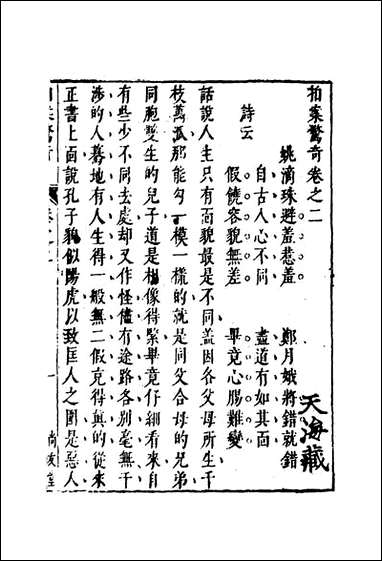 拍案驚奇卷之二
姚滴珠避羞惹羞 鄭月娥將錯就錯
詩云
自古人心不同 盡道有如其面
假饒容貌無差 畢竟心腸難變
話說人生只有面貌最是不同盖因各父母所生千
枝萬派那能勾一模一樣的就是同父合母的兄弟
同胞雙生的兒子道是相像得緊畢竟仔細看來自
有些少不同去處却又作怪儘有途路各別毫無干
渉的人驀地有人生得一般無二假充得眞的從來
正書上面說孔子貌似陽虎以致匡人之圍是惡人
拍案驚奇 卷之二 一 尚友堂
天海藏